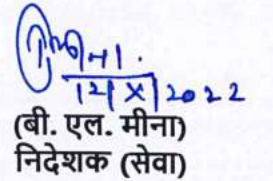 12/X/2022
(बी. एल. मीना)
निदेशक (सेवा)